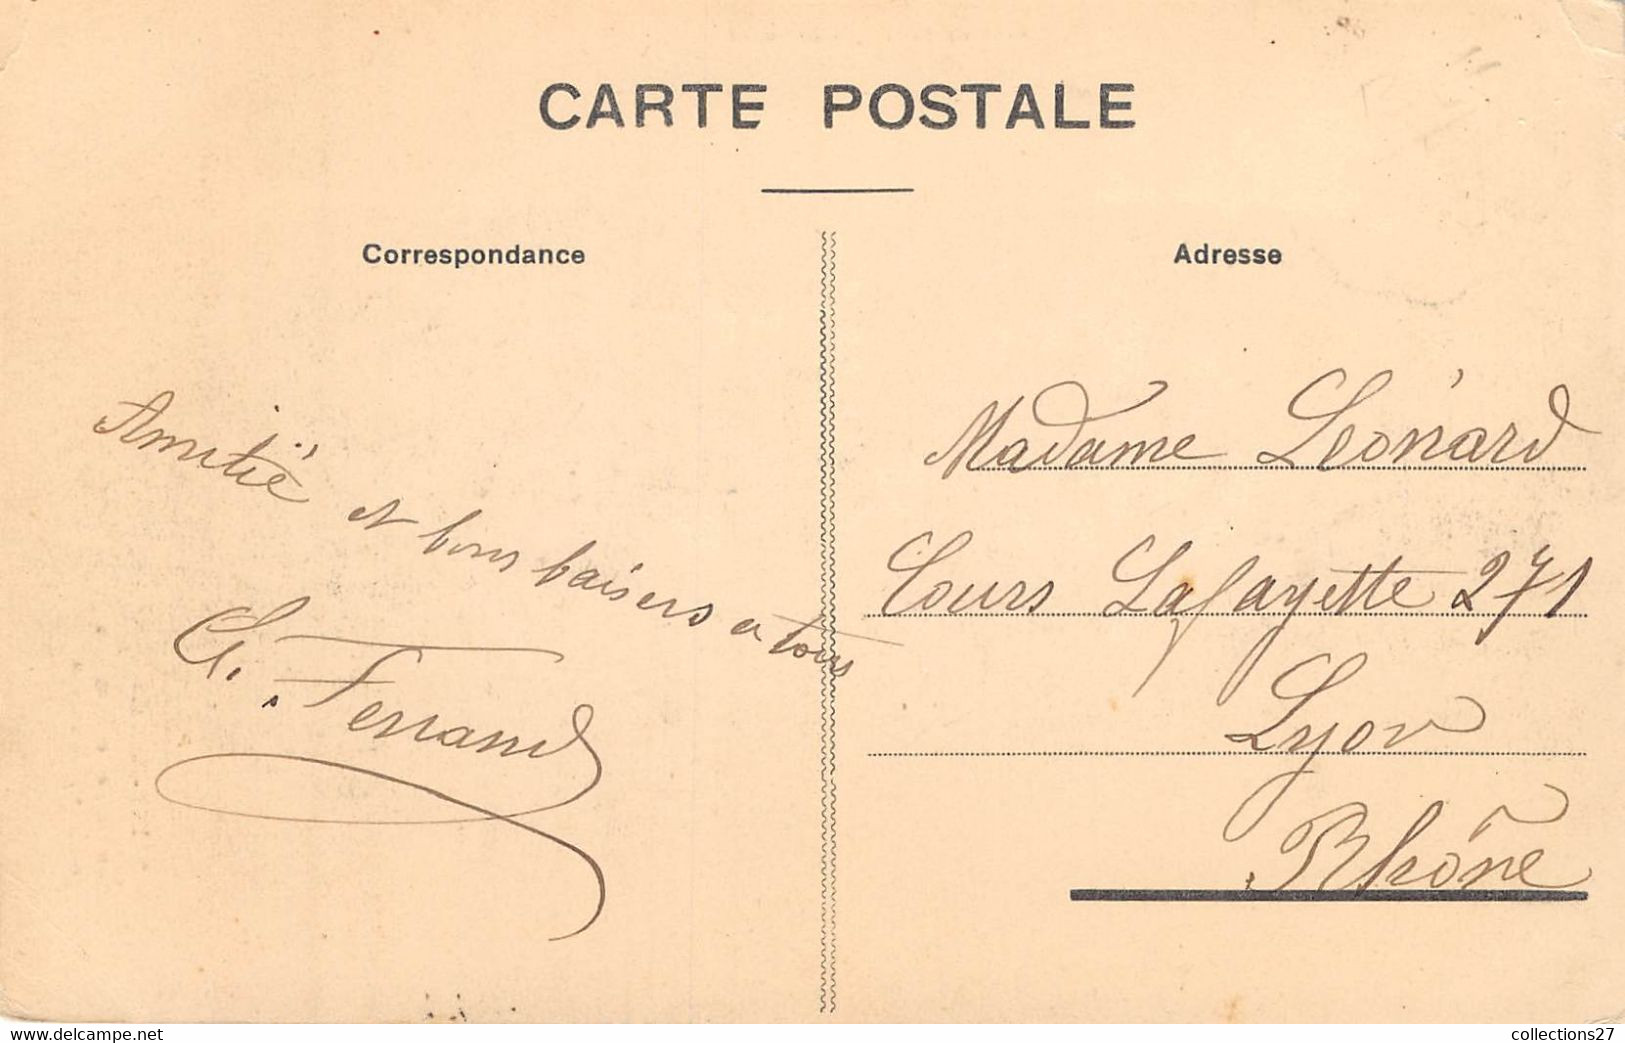 CARTE POSTALE
Correspondance
Adresse
Amitié et bons baisers a tous
Ferrand
Madame Léonard
Cours Lafayette 271
Lyon
Rhône
www.delcampe.net
collections27